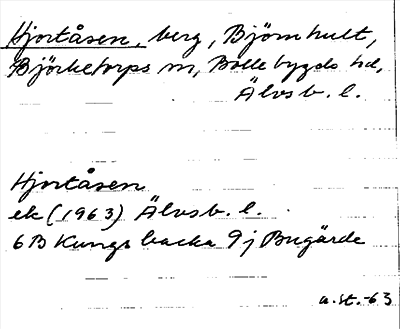 Hjortåsen, berg, Björnhult,
Björketorps sn, Bollebygds hd,
Älvsb. l.
Hjortåsen
ek (1963) Älvsb. l.
6B Kungsbacka 9j Bugärde
a.st.-63